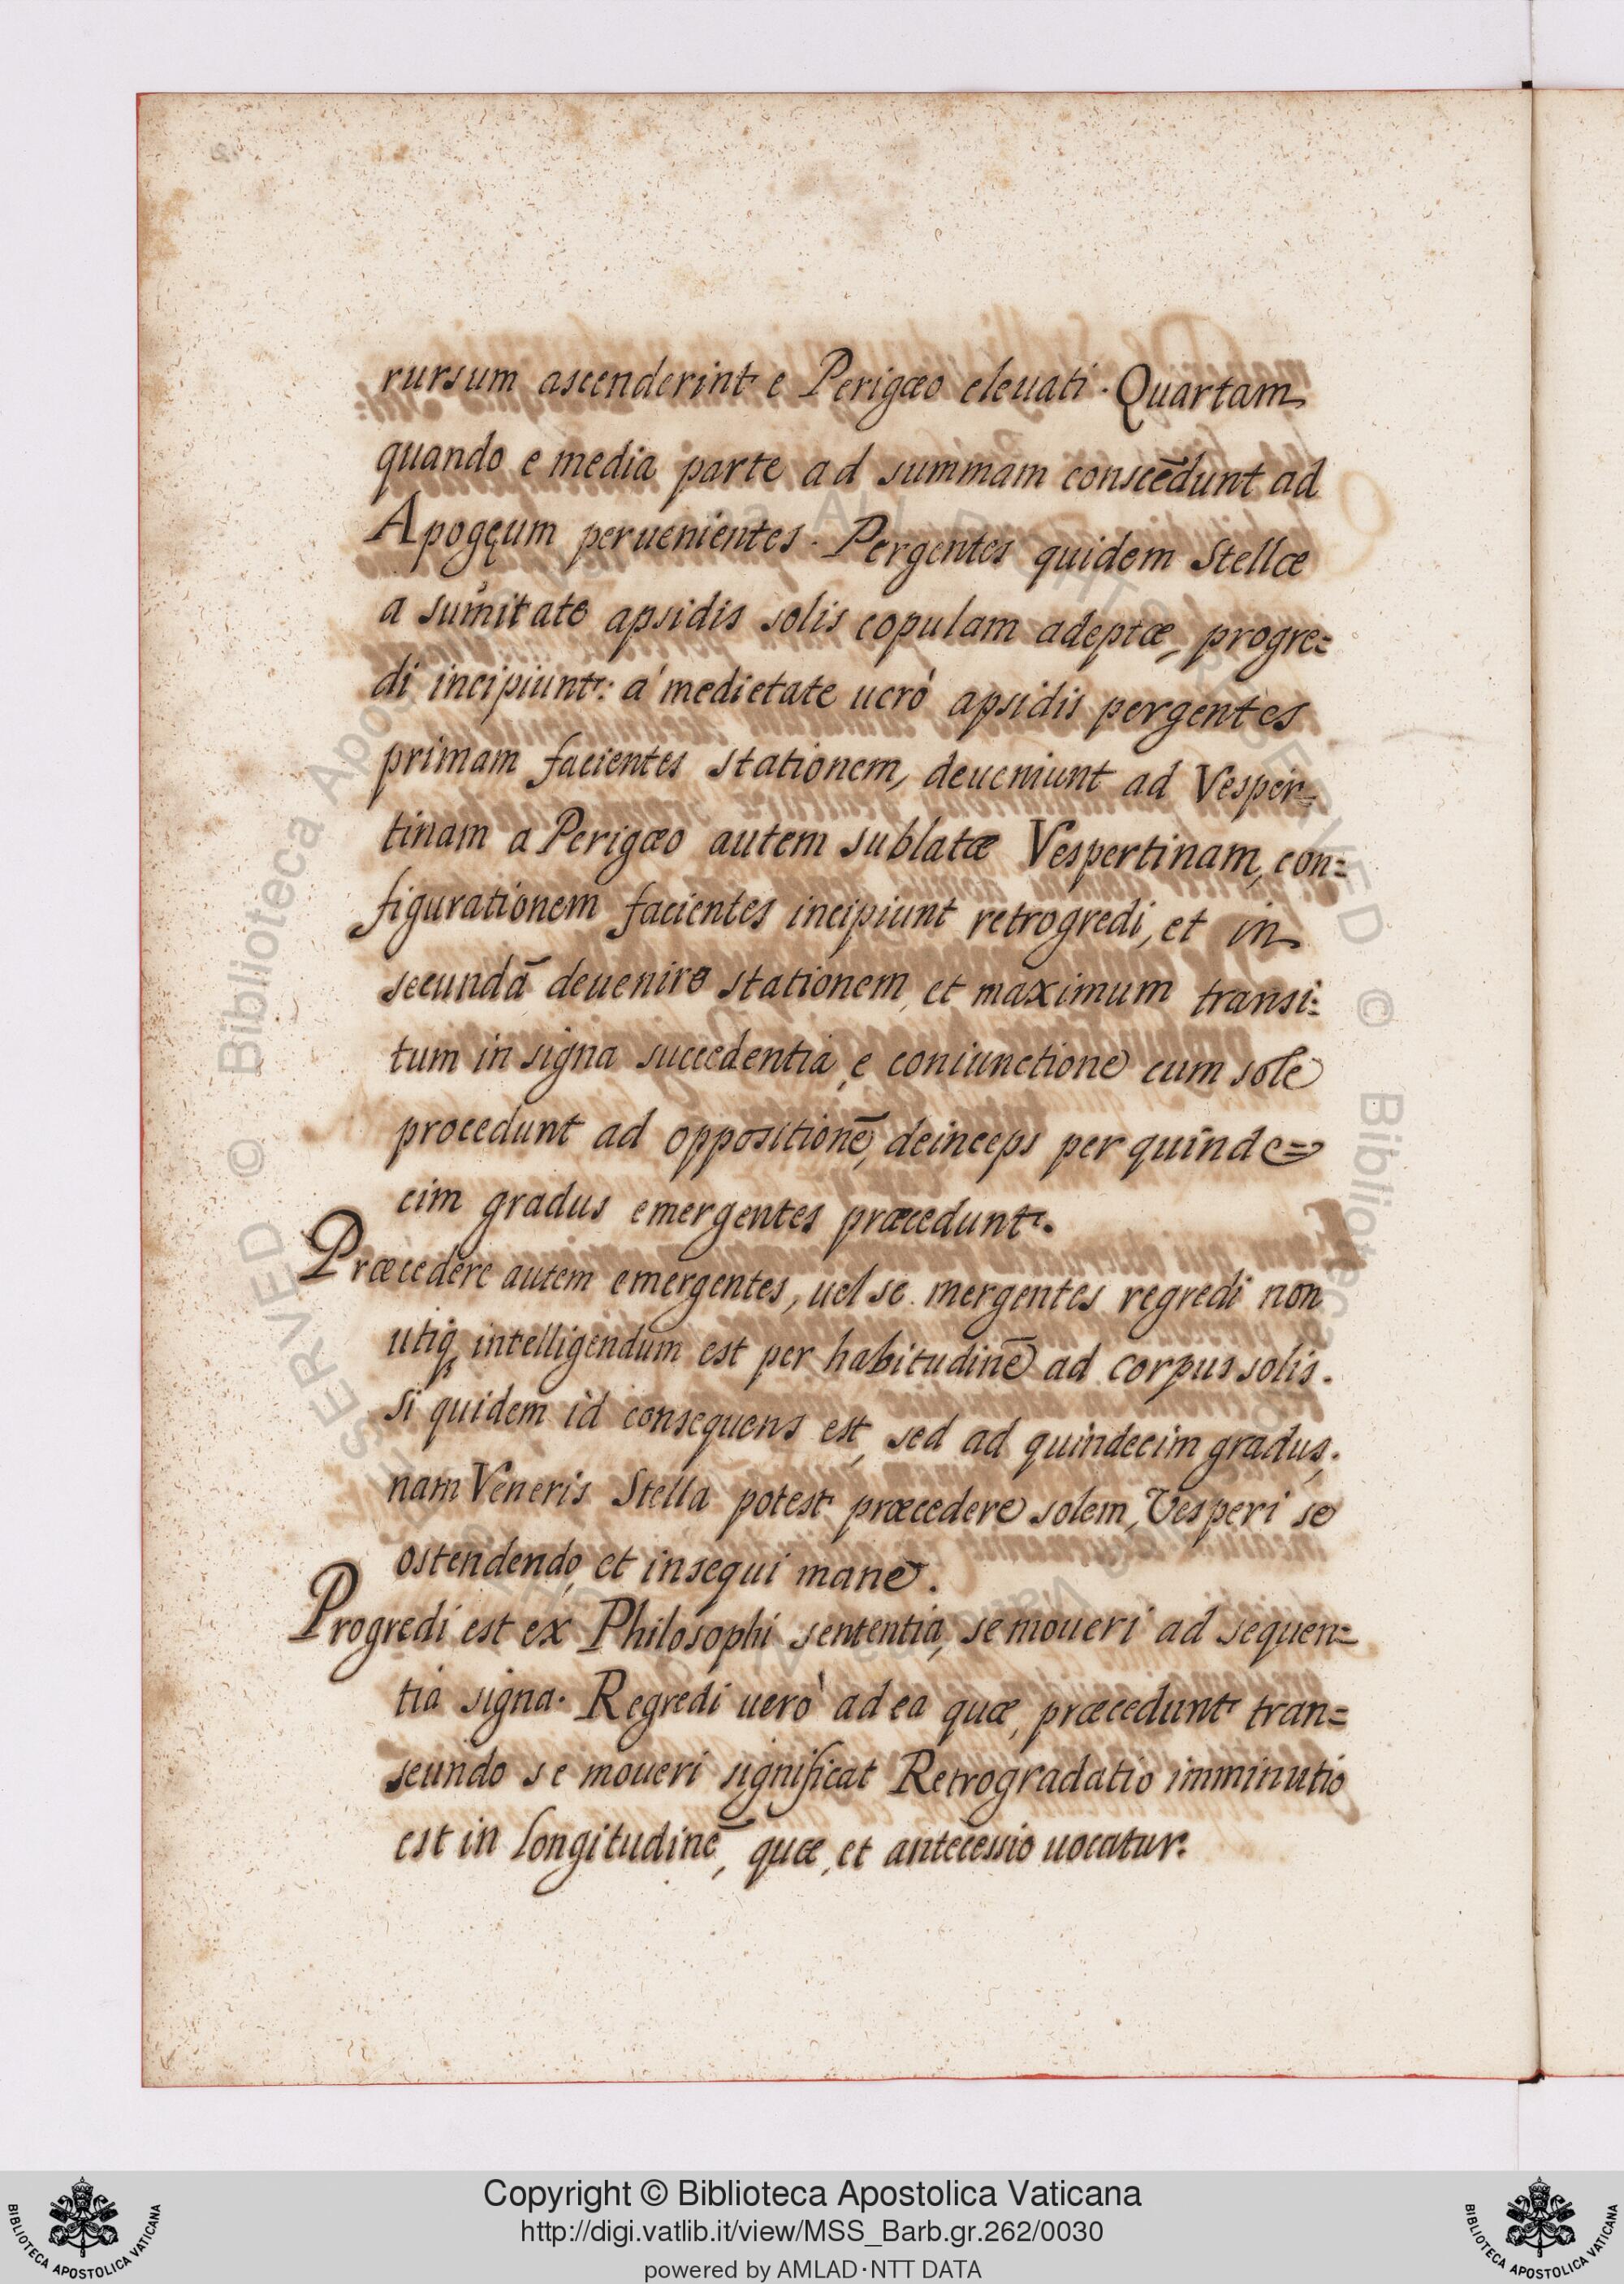 rursum ascenderint e Perigæo eleuati. Quartam
quando e media parte ad summam conscēdunt ad
Apogęum peruenientes. Pergentes quidem Stellæ
a sum̄itate apsidis solis copulam adeptæ, progre=
di incipiunt: á medietate uerò apsidis pergentes
primam facientes stationem, deueniunt ad Vesper=
tinam a Perigæo autem sublatæ Vespertinam, con=
figurationem facientes incipiunt retrogredi, et in
secundā deuenire stationem, et maximum transi=
tum in signa succedentia, e coniunctione cum sole
procedunt ad oppositionē, deinceps per quinde=
cim gradus emergentes præcedunt.
Præcedere autem emergentes, uel se mergentes regredi non
utiq intelligendum est per habitudinē ad corpus solis.
si quidem id consequens est, sed ad quindecim gradus;
nam Veneris Stella potest præcedere solem, Vesperi se
ostendendo, et insequi mane.
Progredi est ex Philosophi sententia, se moueri ad sequen=
tia signa. Regredi uerò ad ea quæ, præcedunt tran=
seundo se moueri significat Retrogradatio imminutio
est in longitudinē, quæ, et antecessio uocatur.
Copyright © Biblioteca Apostolica Vaticana
http://digi.vatlib.it/view/MSS_Barb.gr.262/0030
powered by AMLAD·NTT DATA